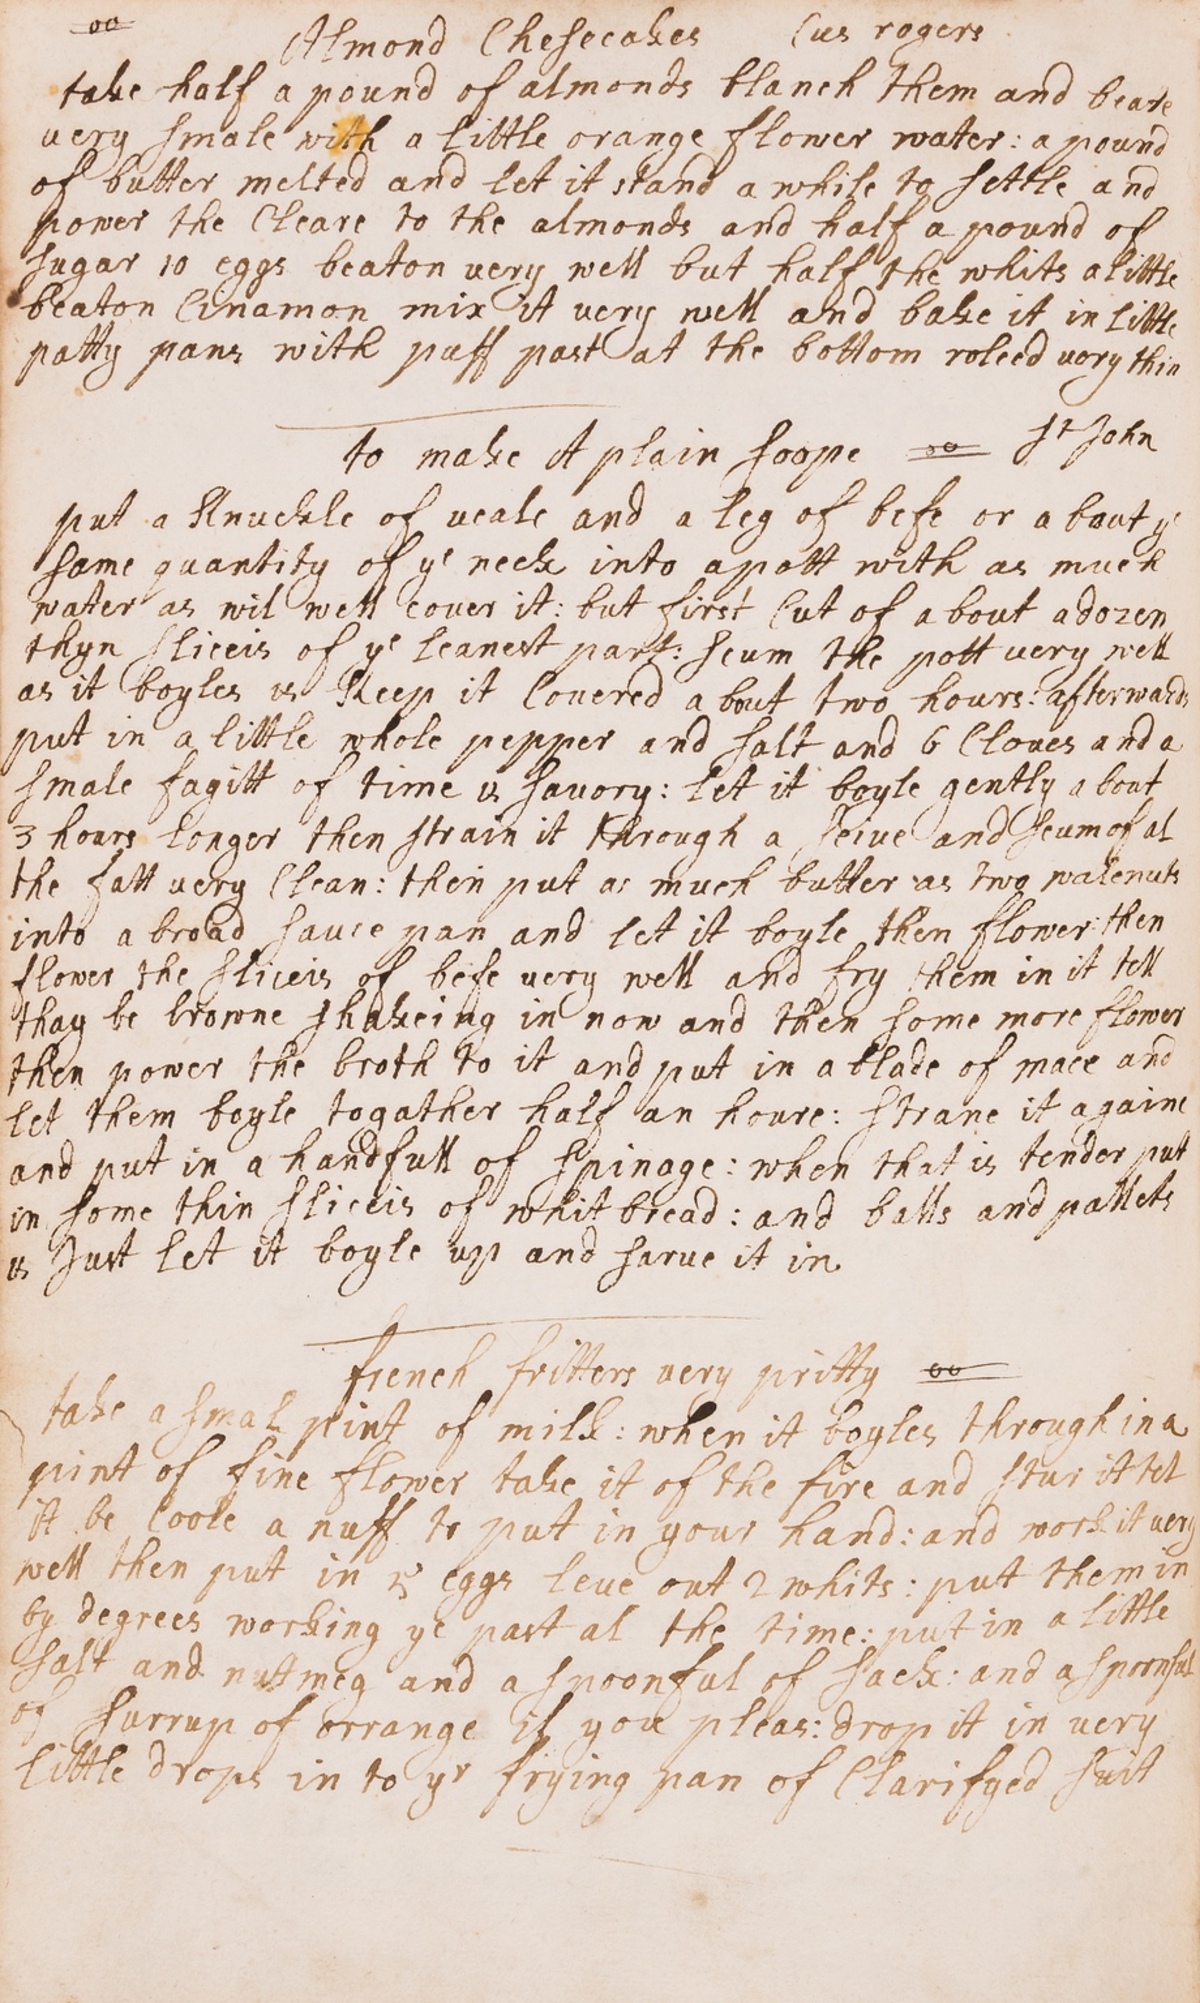 Almond Chesecakes Cus rogers
take half a pound of almonds blanch them and beate
very smale with a little orange flower water: a pound
of butter melted and let it stand a while to settle and
power the Cleare to the almonds and half a pound of
sugar 10 eggs beaton very well but half the whits a little
beaton Cinamon mix it very well and bake it in little
patty pans with puff past at the bottom roleed very thin
to make A plain soope St John
put a Knuckle of veale and a leg of befe or a bout ye
same quantity of ye neck into a pott with as much
water as wil well cover it: but first Cut of a bout a dozen
thyn sliceis of ye leanest part: scum the pott very well
as it boyles & Keep it Covered a bout two hours: afterwards
put in a little whole pepper and salt and 6 Cloves and a
smale fagitt of time & savory: let it boyle gently a bout
3 hours longer then strain it through a seive and scum of al
the fatt very Clean: then put as much butter as two walenuts
into a broad sauce pan and let it boyle then flower: then
flower the sliceis of befe very well and fry them in it tell
thay be browne shakeing in now and then some more flower
then power the broth to it and put in a blade of mace and
let them boyle togather half an houre: strane it againe
and put in a handfull of spinage: when that is tender put
in some thin sliceis of whit bread: and balls and pallets
& Just let it boyle up and sarve it in
french fritters very pritty
take a smal pint of milk: when it boyles through in a
pint of fine flower take it of the fire and stur it tel
it be Coole a nuff to put in your hand: and work it very
well then put in 5 eggs leve out 2 whits: put them in
by degrees working ye past al the time: put in a little
salt and nutmeg and a spoonful of sack: and a spoonful
of surrup of orrange if you pleas: drop it in very
little drops in to yr frying pan of Clarifyed suit